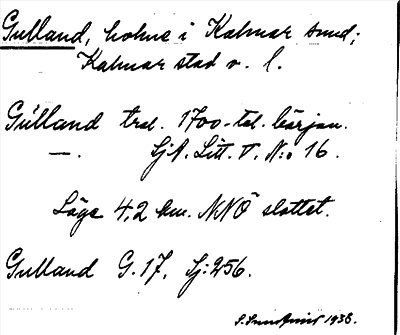 Gulland, holme i Kalmar sund;
Kalmar stad o. l.
Gulland tral. 1700-tal. början.
—. SjA. Litt. V. N:o 16.
Läge 4,2 km. NNÖ slottet.
Gulland G. 17, Sj: 256.
1938.